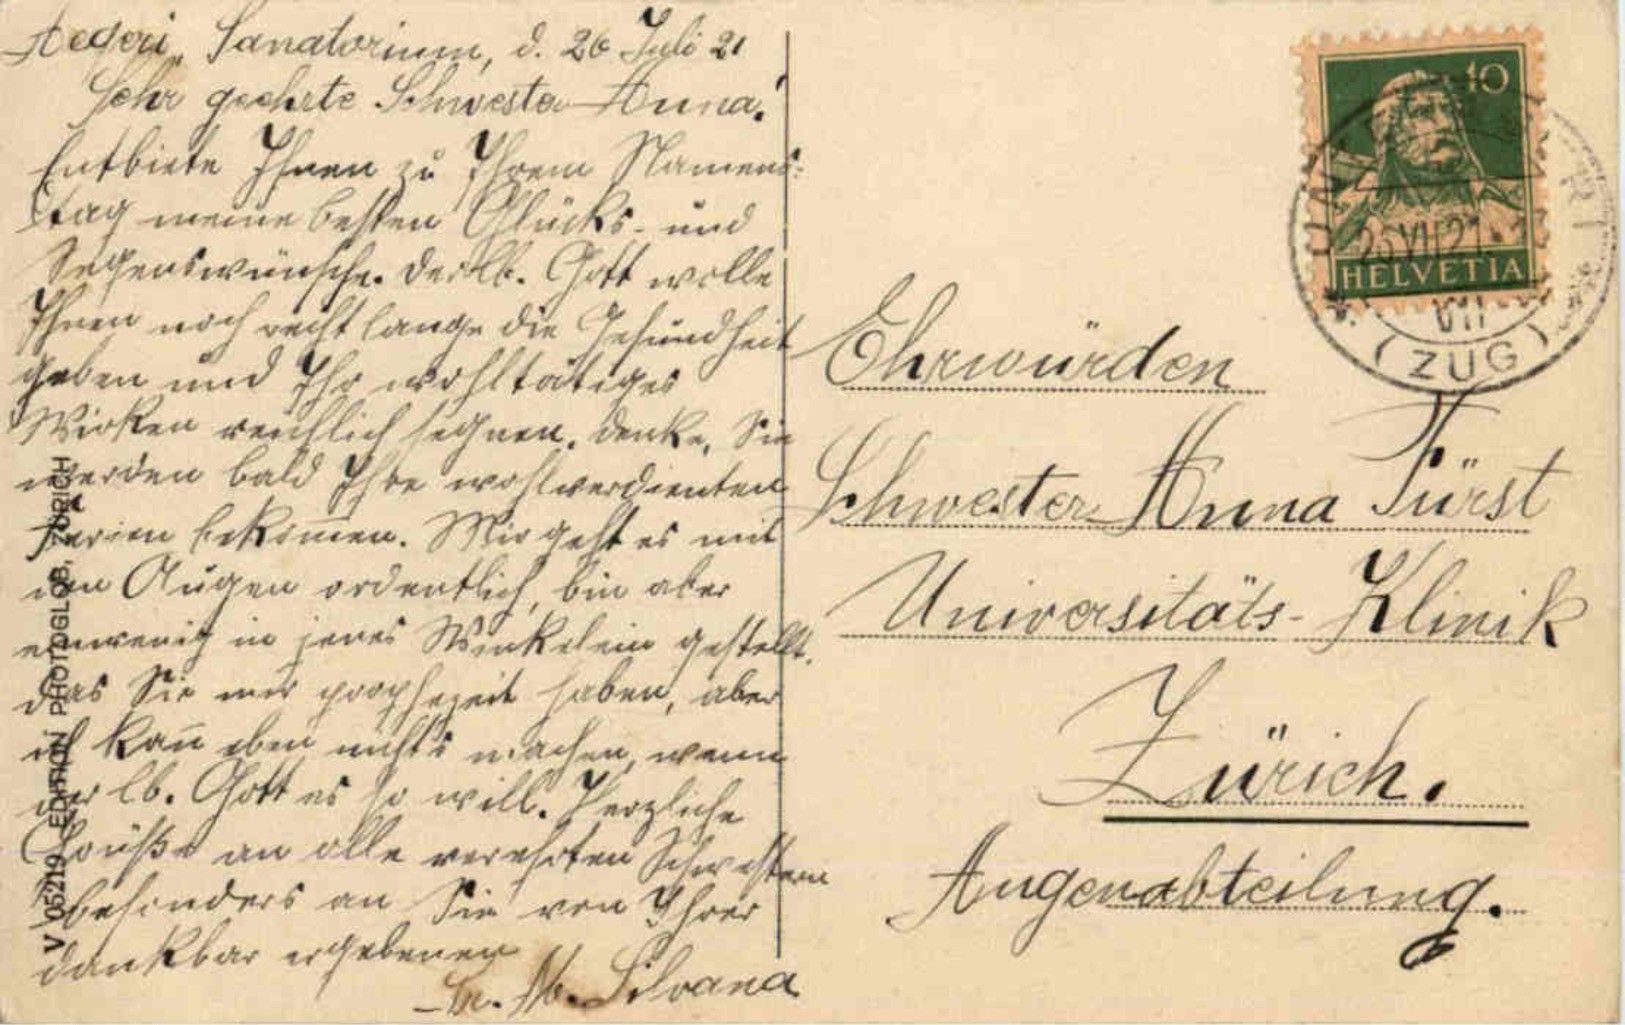 Aegeri, Sanatorium, d. 26 Juli 21
Sehr geehrte Schwester Anna!
Entbiete Ihnen zu Ihrem Namens-
tag meine besten Glücks- und
Segenswünsche. Der lb. Gott wolle
Ihnen noch recht lange die Gesundheit
geben und Ihr wohltätiges
Wirken reichlich segnen. Denke, Sie
werden bald Ihre wohlverdienten
Ferien bekom̄en. Mir geht es mit
den Augen ordentlich, bin aber
ein wenig in jenes Winkelein gestellt,
das Sie mir prophezeit haben, aber
ich kan̄ eben nichts machen, wenn
der lb. Gott es so will. Herzliche
Grüße an alle verehrten Schwestern
besonders an Sie von Ihrer
dankbar ergebenen
Sr. M. Silvana
V 05219 EDITION PHOTOGLOB, ZÜRICH
10
HELVETIA
26.VII.21
VII
(ZUG)
Ehrwürden
Schwester Anna Fürst
Universitäts-Klinik
Zürich.
Augenabteilung.